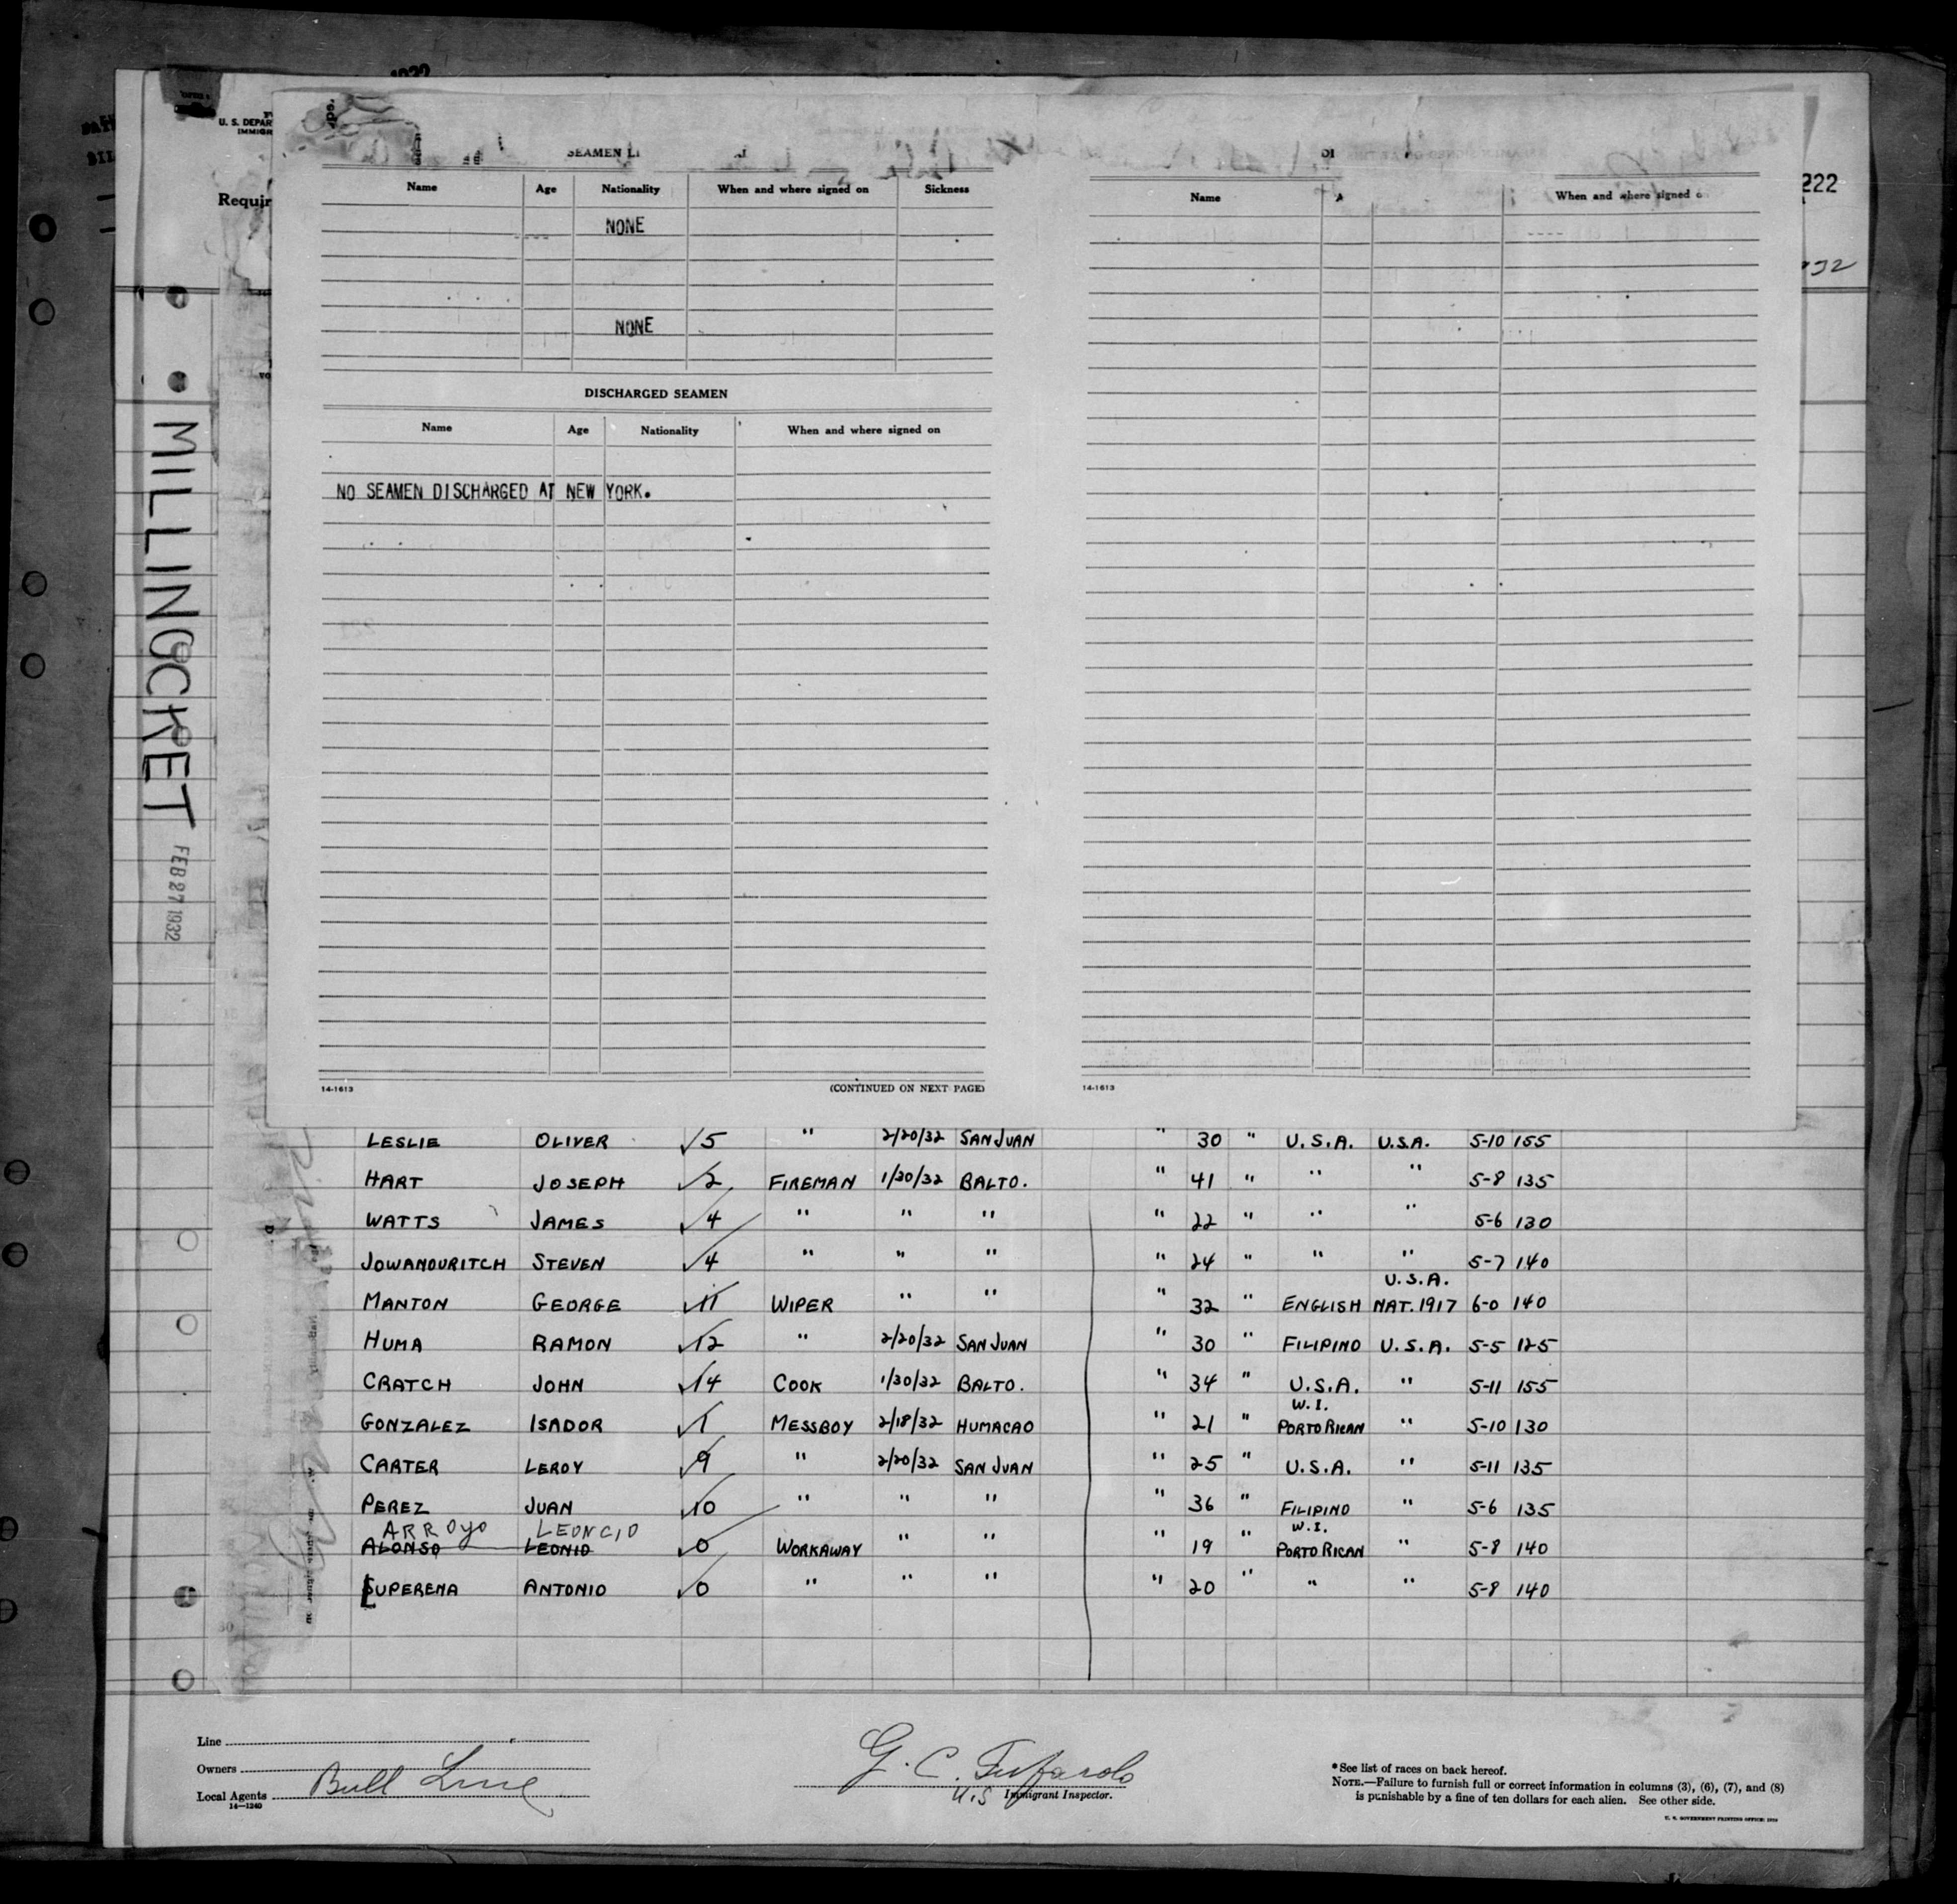 U. S. DEPAR
IMMIGR
Requir
222
SEAMEN LI
Name Age Nationality When and where signed on Sickness
NONE
NONE
DISCHARGED SEAMEN
Name Age Nationality When and where signed on
NO SEAMEN DISCHARGED AT NEW YORK.
14-1613 (CONTINUED ON NEXT PAGE)
Name When and where signed o
14-1613
MILLINOCKET FEB 27 1932
LESLIE OLIVER √5 " 2/20/32 SAN JUAN " 30 " U.S.A. U.S.A. 5-10 155
HART JOSEPH √2 FIREMAN 1/30/32 BALTO. " 41 " " " 5-8 135
WATTS JAMES √4 " " " " 22 " " " 5-6 130
JOWANOURITCH STEVEN √4 " " " " 24 " " " 5-7 140
U.S.A.
MANTON GEORGE √11 WIPER " " " 32 " ENGLISH NAT. 1917 6-0 140
HUMA RAMON √12 " 2/20/32 SAN JUAN " 30 " FILIPINO U.S.A. 5-5 125
CRATCH JOHN √14 COOK 1/30/32 BALTO. " 34 " U.S.A. " 5-11 155
W.I.
GONZALEZ ISADOR √1 MESSBOY 2/18/32 HUMACAO " 21 " PORTO RICAN " 5-10 130
CARTER LEROY √9 " 2/20/32 SAN JUAN " 25 " U.S.A. " 5-11 135
PEREZ JUAN √10 " " " " 36 " FILIPINO " 5-6 135
ARROYO LEONCIO W.I.
ALONSO LEONID √0 WORKAWAY " " " 19 " PORTO RICAN " 5-8 140
SUPERENA ANTONIO √0 " " " " 20 " " " 5-8 140
Line
Owners
Local Agents Bull Line
14-1240
G. C. Tufarolo
U.S Immigrant Inspector.
*See list of races on back hereof.
NOTE.—Failure to furnish full or correct information in columns (3), (6), (7), and (8)
is punishable by a fine of ten dollars for each alien. See other side.